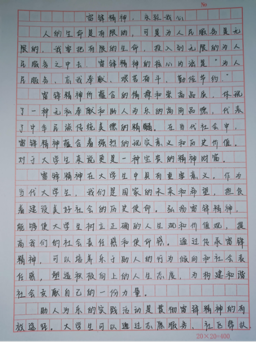 雷锋精神，永驻我心
人的生命是有限的，可是为人民服务是无
限的，我要把有限的生命，投入到无限的为人
民服务之中去
雷锋精神的核心
是"为人
民服务，
艰苦奋斗，勤俭节约"
雷锋精神所蕴含的精神和崇高品质，体现
了一种无私奉献和助人为乐的高尚品德，代表
了中华民族传统美德的精髓。在当代社会中，
雷锋精神蕴含着强烈的现实意义和历史价值，
对于大学生来说更是一种宝贵的精神财富。
雷锋精神在大学生中具有重要意义。作为
当代大学生，我们是国家的未来和希望，担负
着建设美好社会的历史使命。弘扬雷锋精神，
能够使大学生树立正确的人生观和价值观，提
高我们的社会责任感和使命感。通过传承雷锋
精神，可以培养乐于助人的行为倾向和社会责
任感，塑造积极向上的人生态度，为构建和谐
社会贡献自己的一份力量。
助人为乐的实践活动是贯彻雷锋精神的有
效路径。大学生可以通过志愿服务、社区